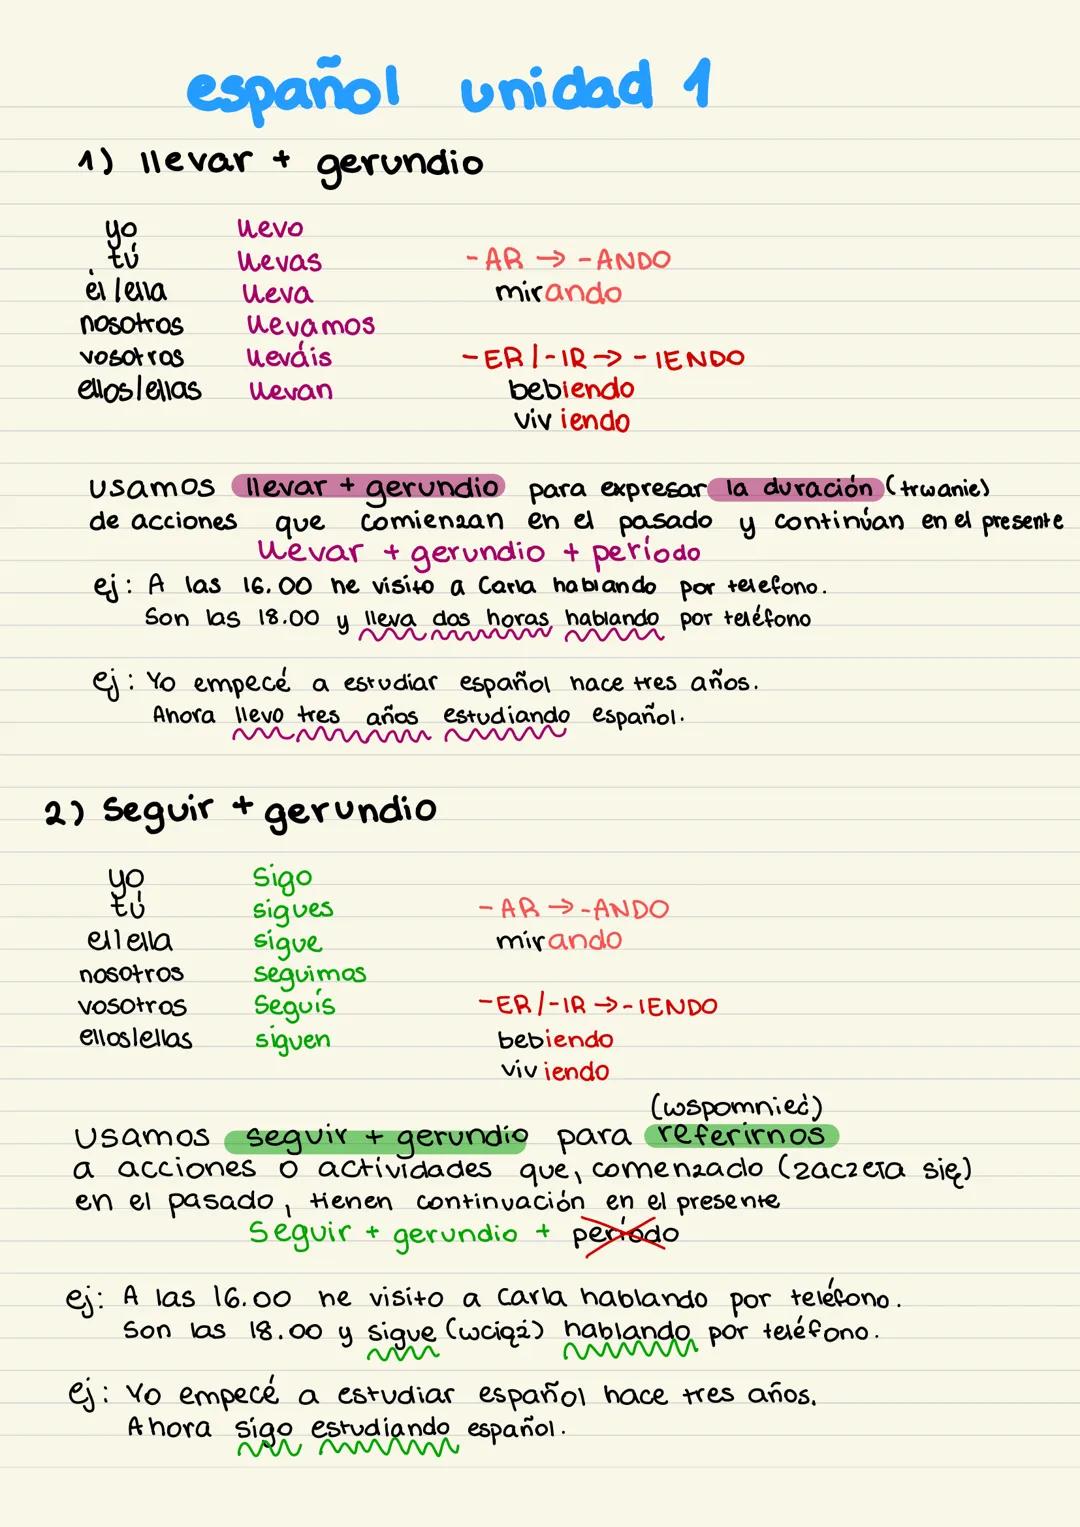 español unidad 1
1) llevar + gerundio
yo llevo
tú llevas -AR → -ANDO
él/ella lleva mirando
nosotros llevamos
vosotros lleváis -ER/-IR → -IENDO
ellos/ellas llevan bebiendo
viviendo
usamos llevar + gerundio para expresar la duración (trwanie)
de acciones que comienzan en el pasado y continúan en el presente
llevar + gerundio + período
ej: A las 16.00 he visito a Carla hablando por telefono.
Son las 18.00 y lleva dos horas hablando por teléfono
ej: Yo empecé a estudiar español hace tres años.
Ahora llevo tres años estudiando español.
2) Seguir + gerundio
yo Sigo
tú sigues -AR → -ANDO
el/ella sigue mirando
nosotros seguimos
vosotros Seguís -ER/-IR → -IENDO
ellos/ellas siguen bebiendo
viviendo
(wspomnieć)
Usamos seguir + gerundio para referirnos
a acciones o actividades que, comenzado (zaczęła się)
en el pasado, tienen continuación en el presente
Seguir + gerundio + período
ej: A las 16.00 he visito a Carla hablando por teléfono.
Son las 18.00 y sigue (wciąż) hablando por teléfono.
ej: Yo empecé a estudiar español hace tres años.
Ahora sigo estudiando español.